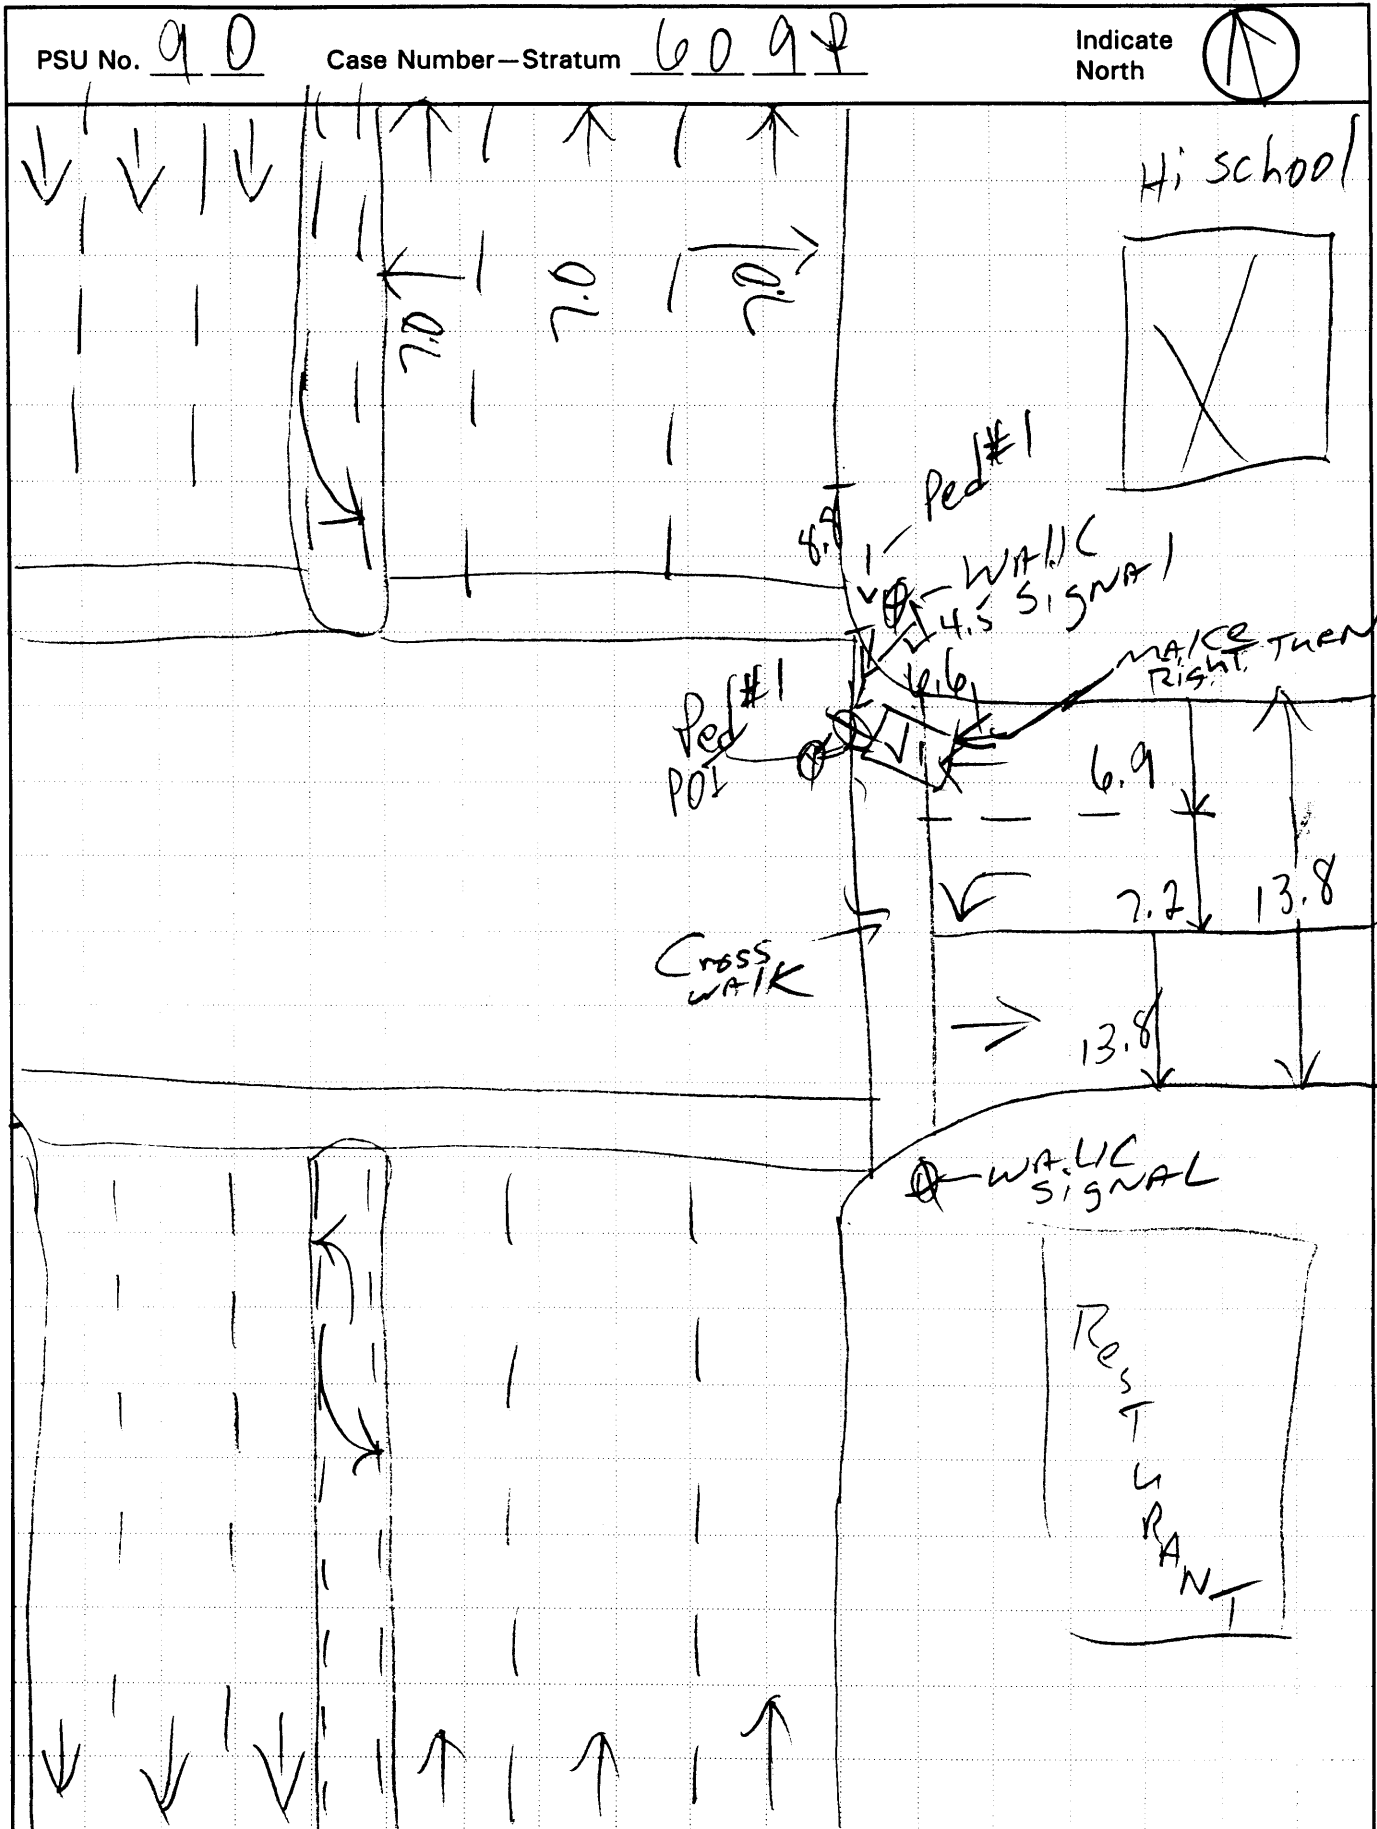 PSU No. 9 0 Case Number—Stratum 6 0 9 P Indicate North
Hi school
Ped #1
8.8
WALK
SIGNAl
4.5
MAKe
Right TURN
6.6
Ped #1
POI
6.9
7.2
13.8
Cross
WAlK
13.8
WALK
SIgNAL
ResTuRANT